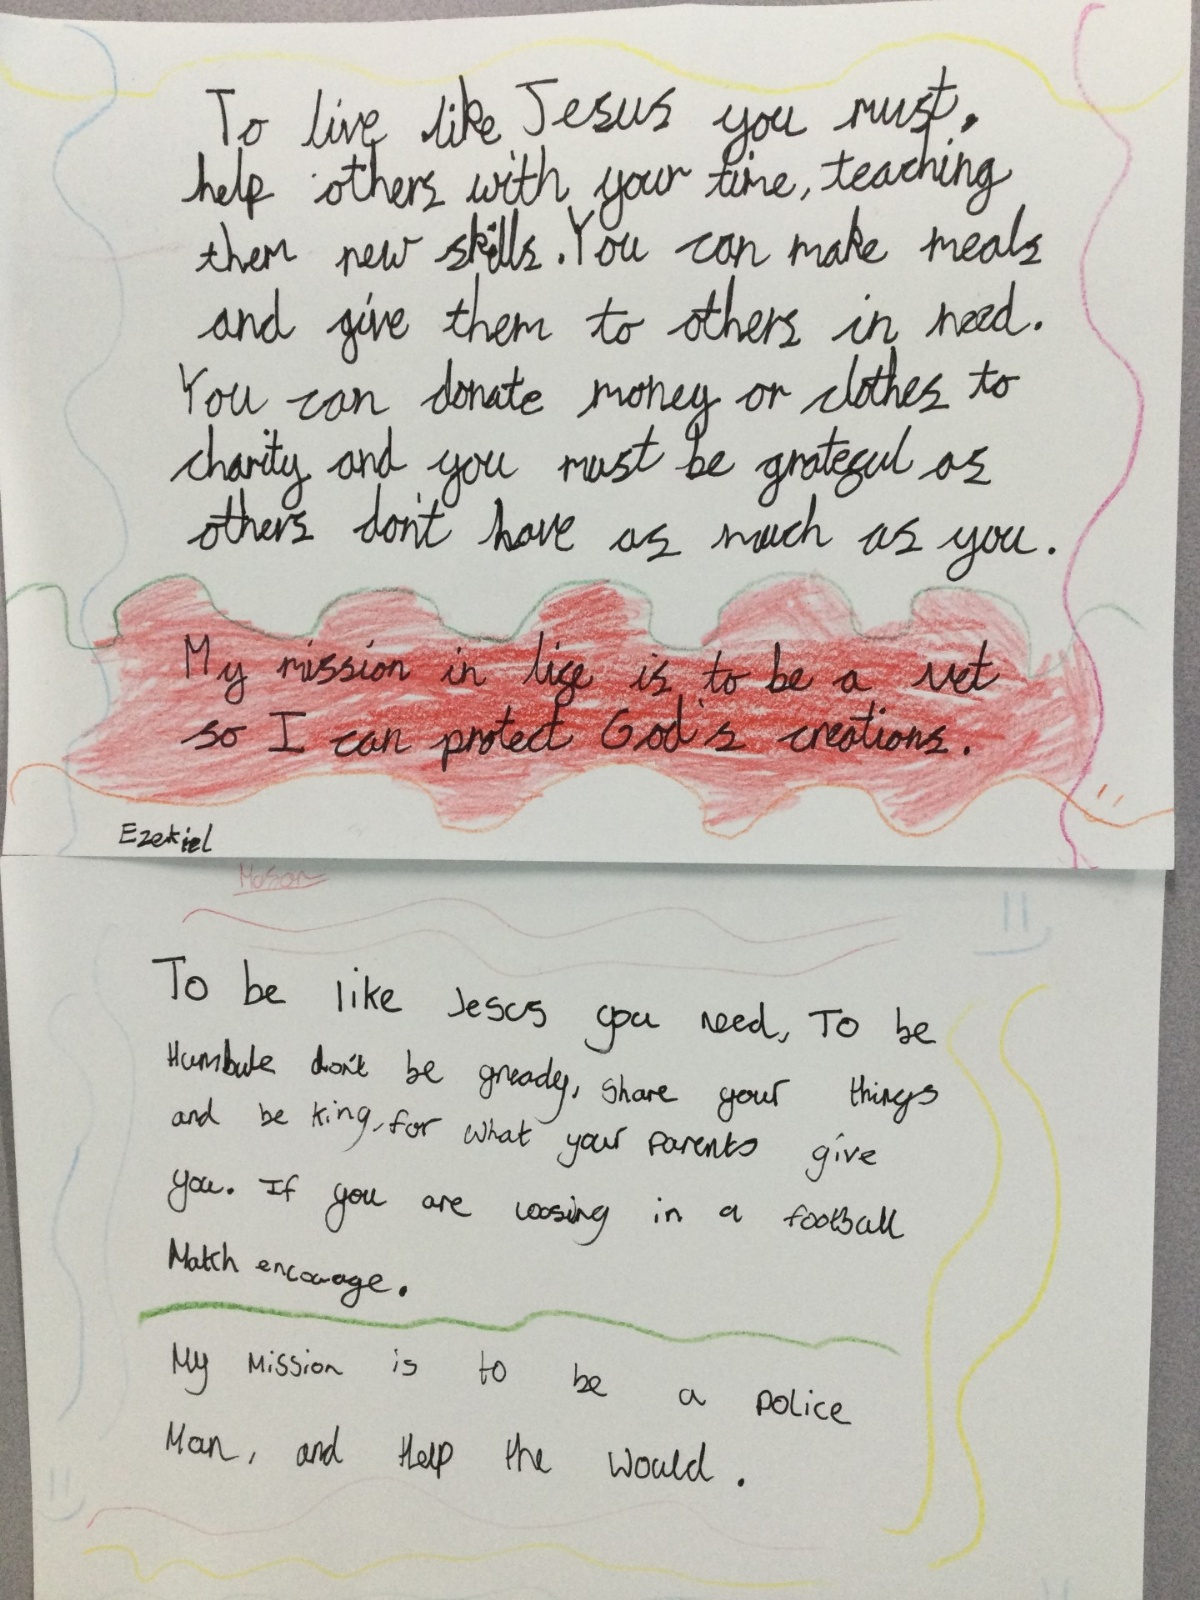 To live like Jesus you must,
help others with your time, teaching
them new skills. You can make meals
and give them to others in need.
You can donate money or clothes to
charity and you must be grateful as
others don't have as much as you.
My mission in life is to be a vet
so I can protect God's creations.
Ezekiel
Mason
To be like Jesus you need, To be
Humbule don't be gready, share your things
and be king, for what your parents give
you. If you are loosing in a football
Match encourage.
My Mission is to be a police
Man, and Help the Would.